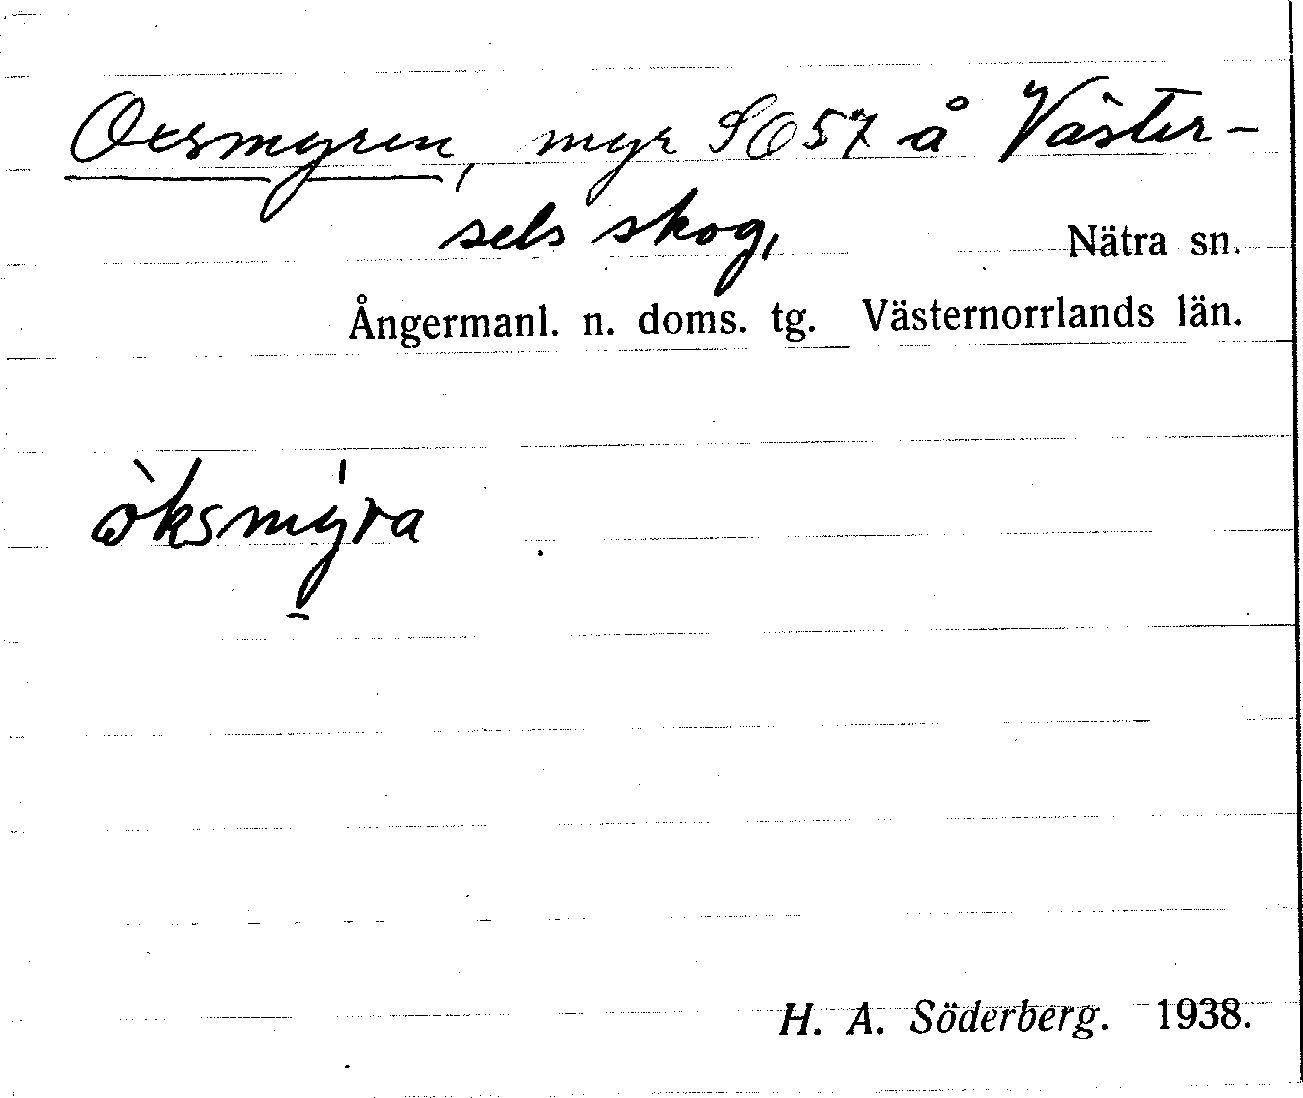 Oxsmyren, myr SO57 å Väster-
sels skog, Nätra sn.
Ångermanl. n. doms. tg. Västernorrlands län.
òksmýra
H. A. Söderberg. 1938.